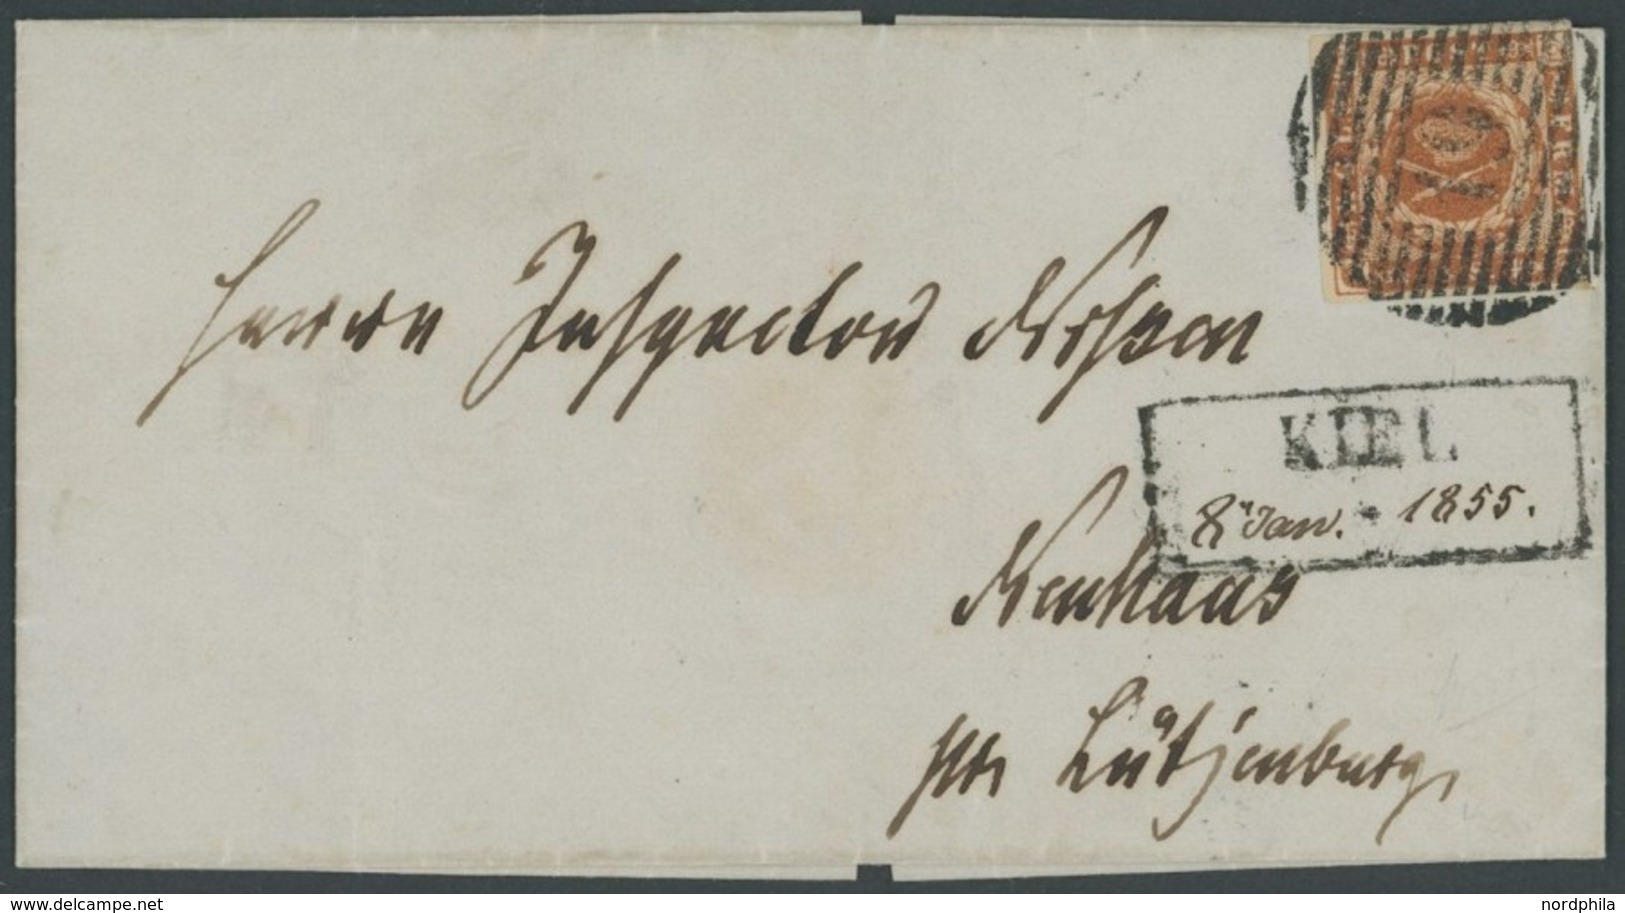 Herrn Inspector Nissen
KIEL
8 Jan. 1855.
Neuhaus
pr Lütjenburg.
www.delcampe.net
nordphila